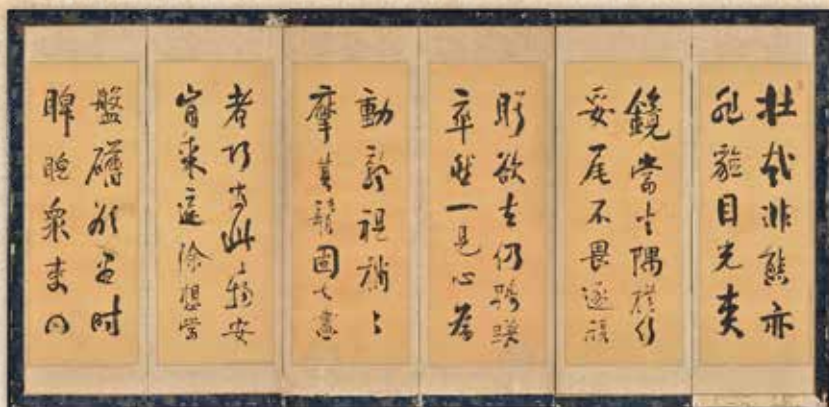 壯哉非熊亦
非貙目光夾
鏡當坐隅橫行
妥尾不畏逐顧
盻欲去仍躊躇
卒然一見心為
動熟視稍々
摩其鬚固知畫
者巧為此々物安
肯來庭除想當
盤礴欲畫時
睥睨眾史